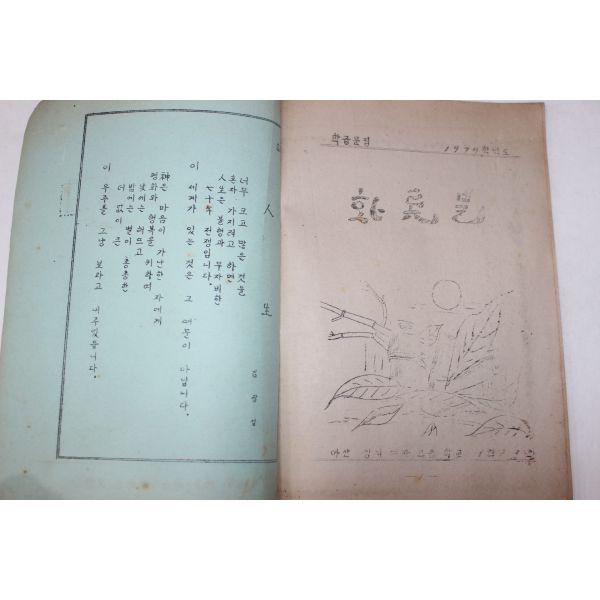 人生
너무 크고 많은 것을
혼자 가지려고 하면
人生은 불행과 무자비한
七十年 전쟁입니다.
이 세계가 있는 것은 그 때문이 아닙니다.
神은 마음이 가난한 자에게
평화와 행복을 위하여
낮에는 해뜨고
밤에는 별이 총총한
더 없이 큰
이 우주를 그냥 보라고 내주었습니다.
김광섭
학급문집
1979학년도
마산